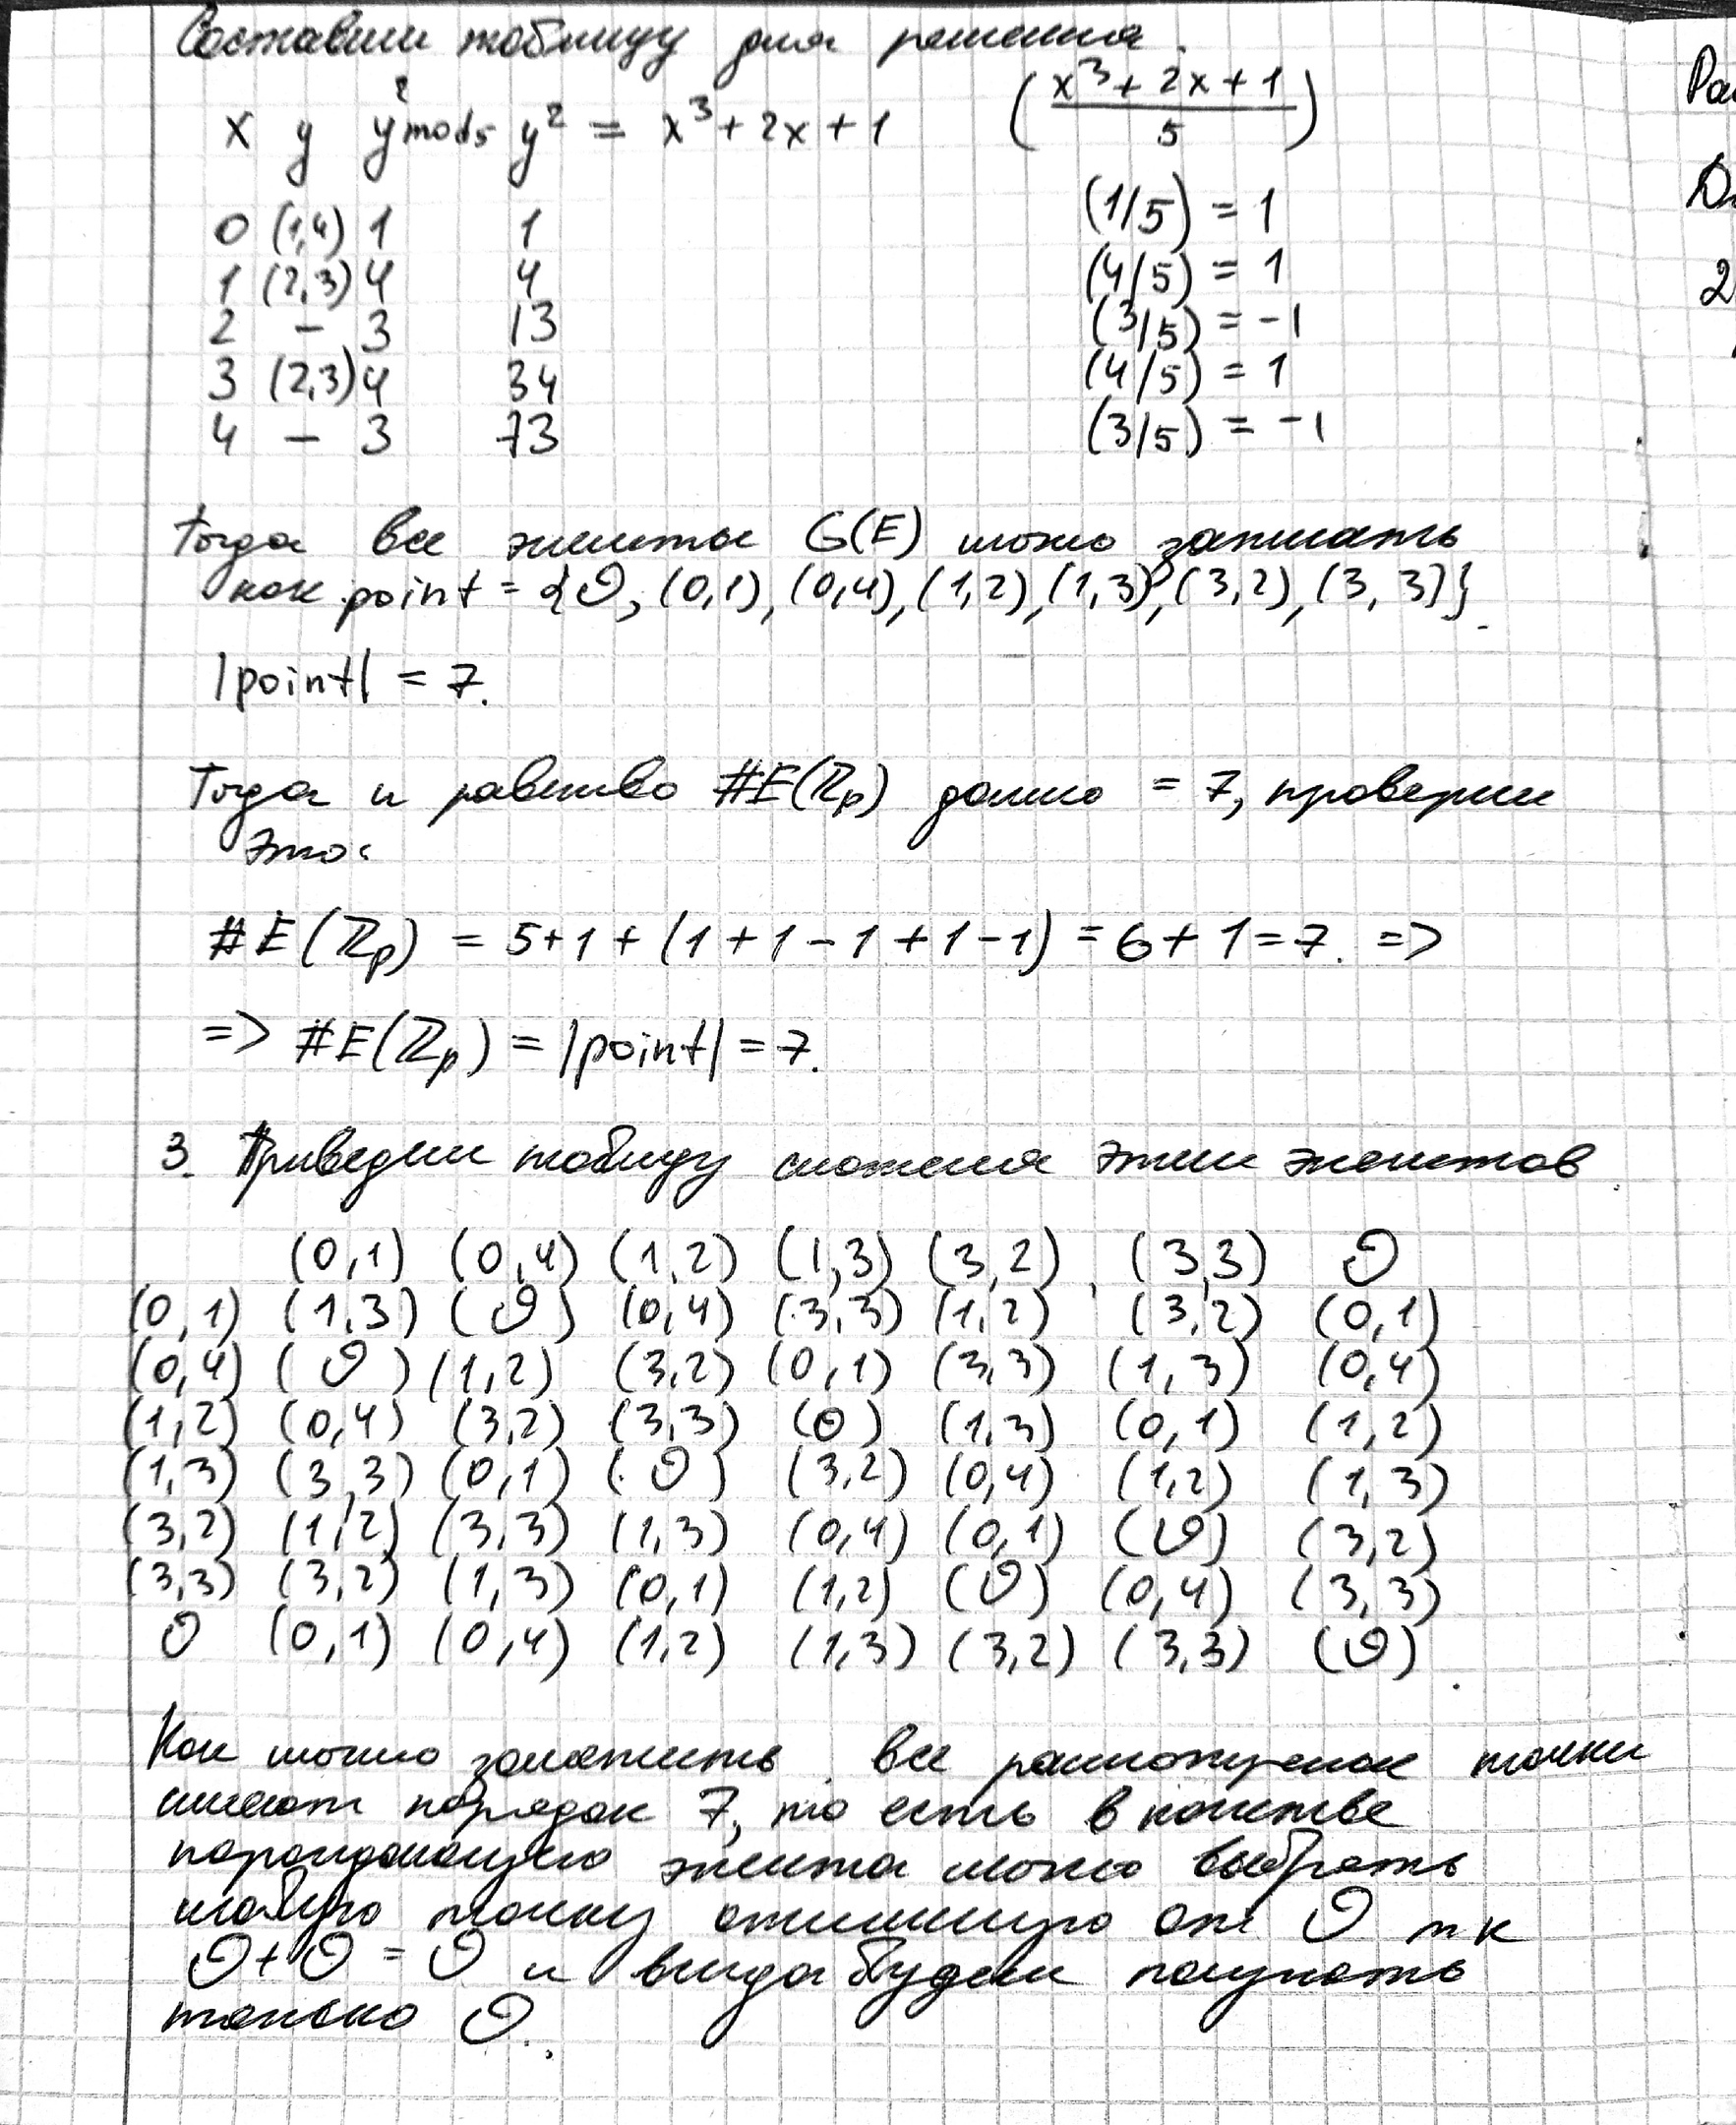 Составим таблицу для решения.
x y y² mod 5 y² = x³ + 2x + 1 (x³ + 2x + 1 / 5)
0 (1,4) 1 1 (1/5) = 1
1 (2,3) 4 4 (4/5) = 1
2 – 3 13 (3/5) = -1
3 (2,3) 4 34 (4/5) = 1
4 – 3 73 (3/5) = -1
Тогда все элементы G(E) можно записать
как point = {O, (0,1), (0,4), (1,2), (1,3), (3,2), (3,3)}.
|point| = 7.
Тогда и равенство #E(ℤp) должно = 7, проверим
это:
#E(ℤp) = 5+1 + (1+1-1+1-1) = 6+1 = 7. =>
=> #E(ℤp) = |point| = 7.
3. Приведем таблицу сложения этих элементов
(0,1) (0,4) (1,2) (1,3) (3,2) (3,3) O
(0,1) (1,3) (O) (0,4) (3,3) (1,2) (3,2) (0,1)
(0,4) (O) (1,2) (3,2) (0,1) (3,3) (1,3) (0,4)
(1,2) (0,4) (3,2) (3,3) (O) (1,3) (0,1) (1,2)
(1,3) (3,3) (0,1) (O) (3,2) (0,4) (1,2) (1,3)
(3,2) (1,2) (3,3) (1,3) (0,4) (0,1) (O) (3,2)
(3,3) (3,2) (1,3) (0,1) (1,2) (O) (0,4) (3,3)
O (0,1) (0,4) (1,2) (1,3) (3,2) (3,3) (O).
Как можно заметить все точки
имеют порядок 7, то есть в качестве
порождающего элемента можно выбрать
любую точку отличную от O т к
O + O = O и всегда будем получать
только O.